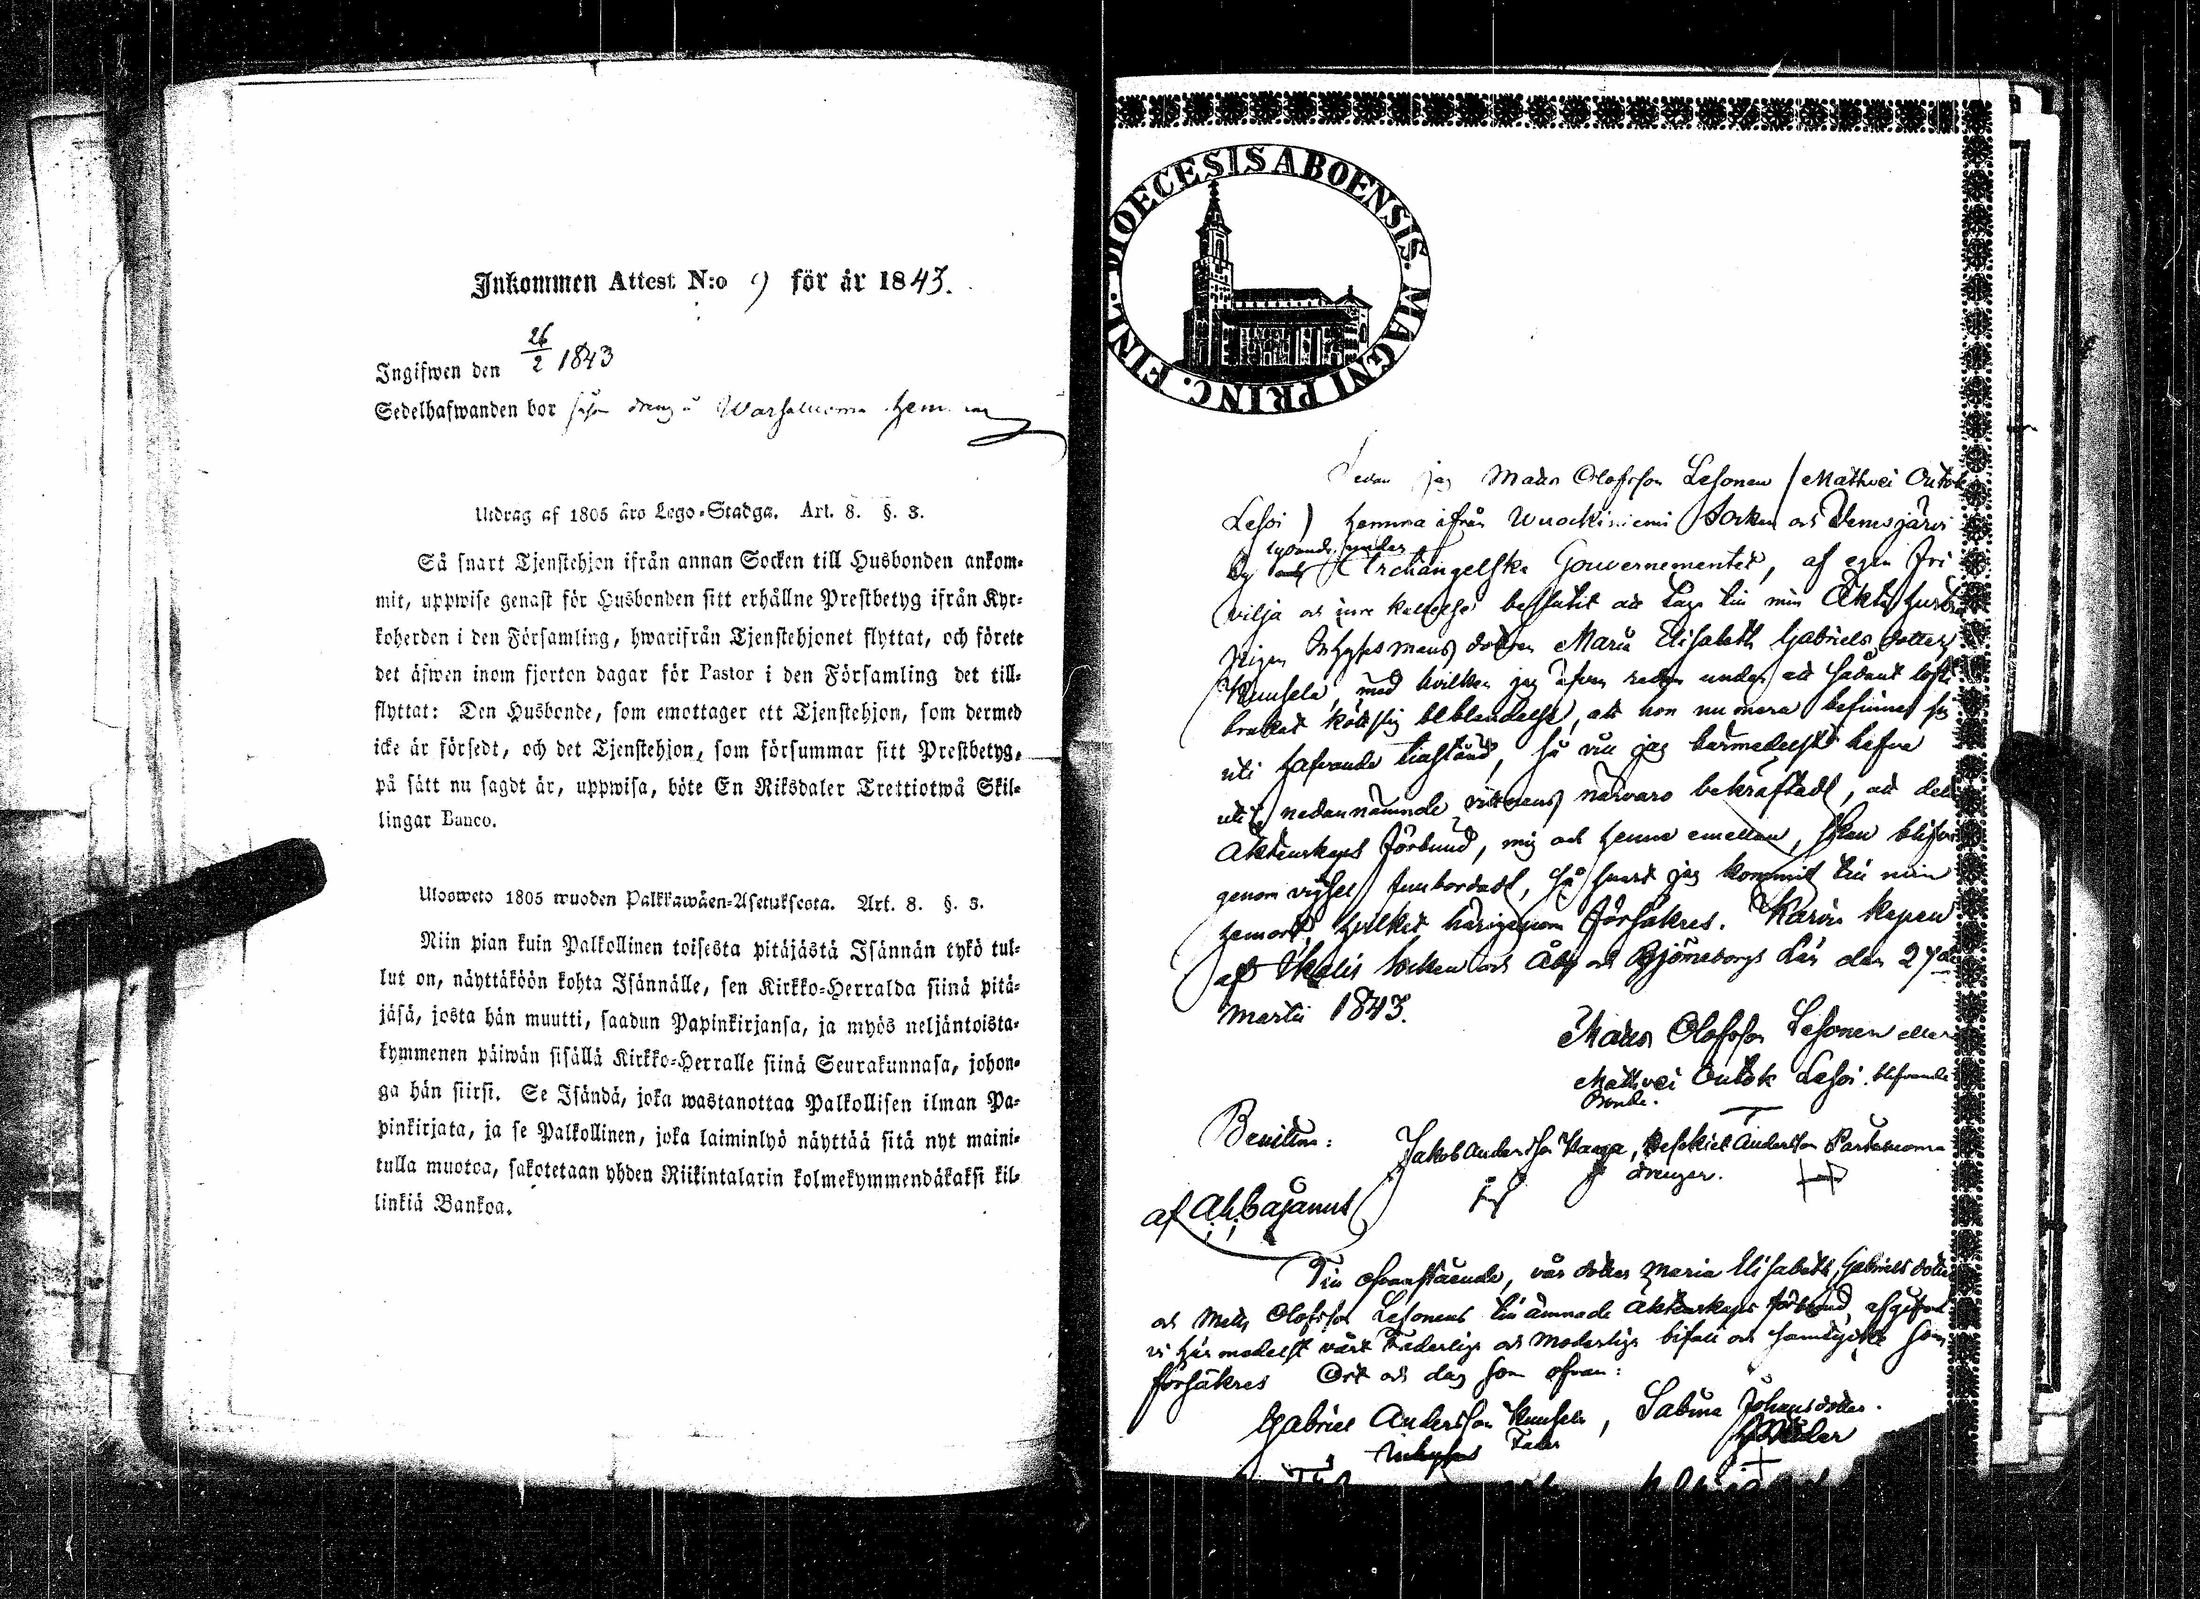 Inkommen Attest N:o 9 för år 1843.
Ingifwen den 26/2 1843
Sedelhafwanden bor såsom dreng å hemman
Utdrag af 1805 års Lego-Stadga. Art. 8. §. 3.
Så snart Tjenstehjon ifrån annan Socken till Husbonden ankom-
mit, uppwise genast för Husbonden sitt erhållne Prestbetyg ifrån Kyr-
koherden i den Församling, hwarifrån Tjenstehjonet flyttat, och förete
det äfwen inom fjorton dagar för Pastor i den Församling det till-
flyttat: Den Husbonde, som emottager ett Tjenstehjon, som dermed
icke är försedt, och det Tjenstehjon, som försummar sitt Prestbetyg,
på sätt nu sagdt är, uppwisa, böte En Riksdaler Trettiotwå Skil-
lingar Banco.
Ulosweto 1805 wuoden Palkkawäen-Asetuksesta. Art. 8. §. 3.
Niin pian kuin Palkollinen toisesta pitäjästä Isännän tykö tul-
lut on, näyttäköön kohta Isännälle, sen Kirkko-Herralda siinä pitä-
jäsä, josta hän muutti, saadun Papinkirjansa, ja myös neljäntoista-
kymmenen päiwän sisällä Kirkko-Herralle siinä Seurakunnasa, johon-
ga hän siirsi. Se Isändä, joka wastanottaa Palkollisen ilman Pa-
pinkirjata, ja se Palkollinen, joka laiminlyö näyttää sitä nyt maini-
tulla muotoa, sakotetaan yhden Riikintalarin kolmekymmendäkaksi kil-
linkiä Bankoa.
DIOECESIS ABOENSIS. MAGNI PRINC. FINL.
Sedan jag Mats Olofsson Lesonen / Mathvei Ontok
Lesoi ) hemma ifrån Wuockiniemi Socken och Venesjärvi
by lydande under Archangelska Gouvernementet, af egen fri
vilja och inre kallelse beslutit att taga till min Äkta hustru
pigan Inhyses mans dottren Maria Elisabeth Gabriels dotter
Kuusela, med hvilken jag äfven redan under ett sådant löfte
köttslig beblandelse, att hon numera befinner sig
uti hafvande tillstånd, så vill jag härmedelst hafva
uti nedannämnde vittnens närvaro bekräftadt, att detta
Äktenskaps förbund, mig och henne emellan, skall blifva
genom vigsel fullbordadt, så snart jag kommit till min
hemort, hvilket härigenom försäkres. Karvia Kapell
af Ikalis Socken och Åbo och Björneborgs Län den 27de
Martii 1843.
Mats Olofsson Lesonen eller
Mathvei Ontok Lesoi. blifvande
Bonde.
Bevittna:
Jakob Andersson Andersson
drenger.
af
Till ofvanstående, vår dotter Maria Elisabeth Gabriels dotter
och Mats Olofsson Lesonens tillämnade Äktenskaps förbund, afgifva
vi härmedelst vårt Faderliga och Moderliga bifall och samtycke som
försäkres Ort och dag som ofvan:
Gabriel Andersson Kuusela, Sabina Johansdotter.
Fader Moder